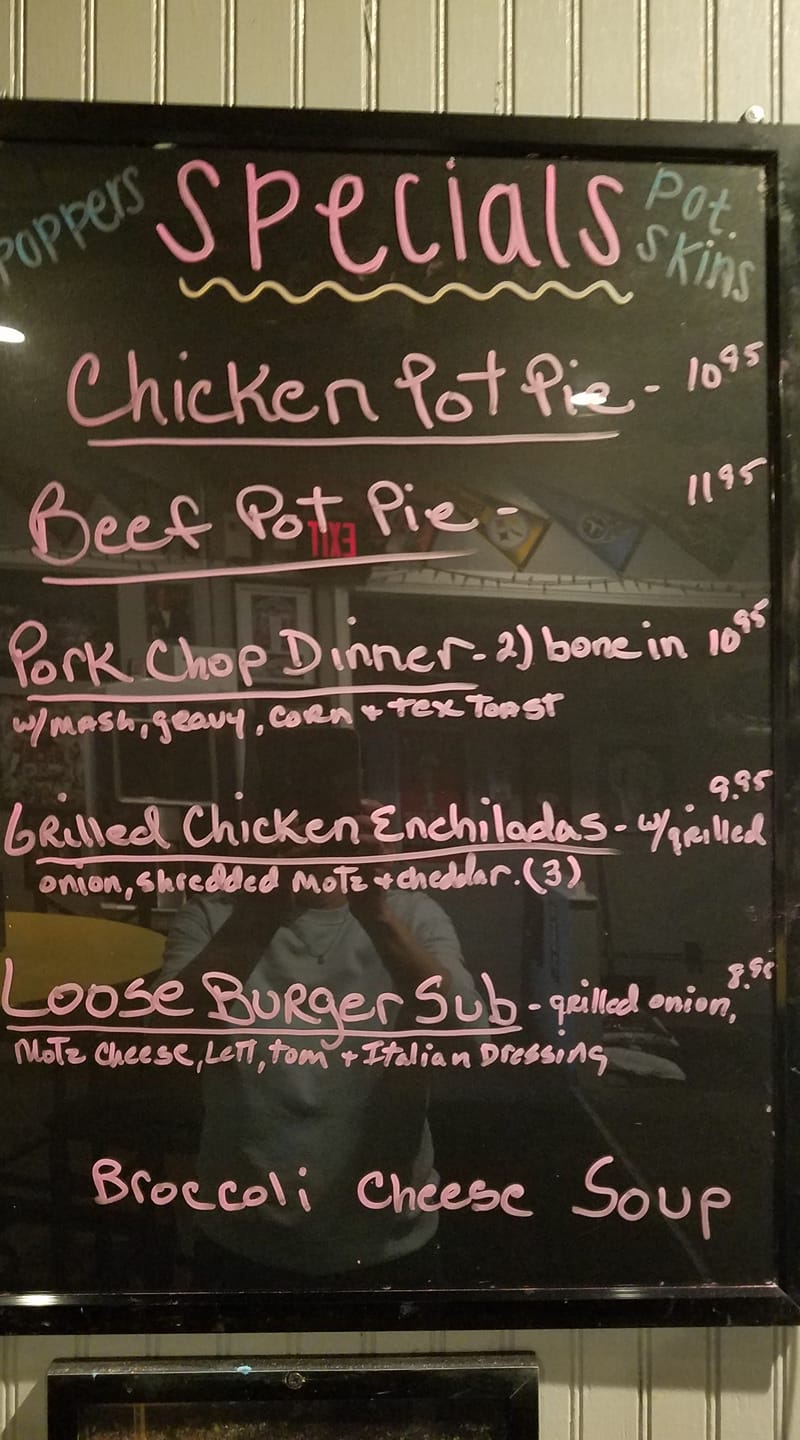 Poppers
Specials
Pot.
Skins
Chicken Pot Pie - 10 95
Beef Pot Pie - 11 95
EXIT
Pork Chop Dinner - 2) bone in 10 95
w/ mash, geavy, corn + Tex Toast
9.95
Grilled Chicken Enchiladas - w/ grilled
onion, shredded Motz + cheddar. (3)
8.95
Loose Burger Sub - grilled onion,
Motz Cheese, Lett, tom + Italian Dressing
Broccoli Cheese Soup